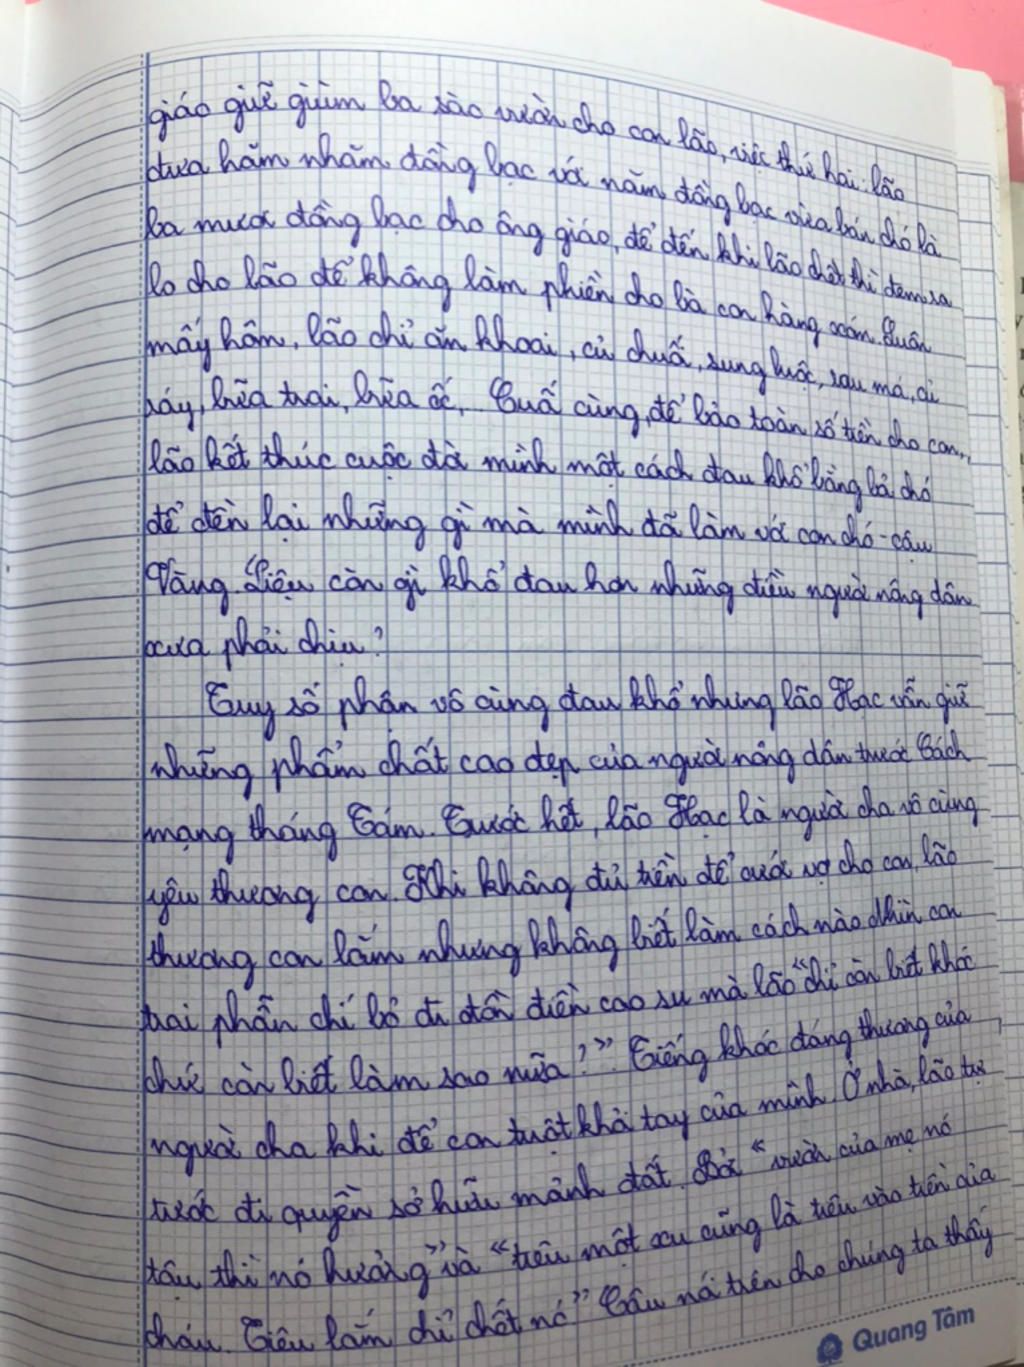 giáo giữ giùm ba sào vườn cho con lão, việc thứ hai: lão
đưa hăm nhăm đồng bạc với năm đồng bạc vừa bán chó là
ba mươi đồng bạc cho ông giáo, để đến khi lão chết thì đem ra
lo cho lão để không làm phiền cho bà con hàng xóm. Suốn
mấy hôm, lão chỉ ăn khoai, củ chuối, sung luộc, rau má, củ
ráy, bữa trai, bữa ốc,... Cuối cùng, để bảo toàn số tiền cho con,
lão kết thúc cuộc đời mình một cách đau khổ bằng bả chó
để đền lại những gì mà mình đã làm với con chó - cậu
Vàng. Liệu còn gì khổ đau hơn những điều người nông dân
xưa phải chịu?
Tuy số phận vô cùng đau khổ nhưng lão Hạc vẫn giữ
những phẩm chất cao đẹp của người nông dân trước Cách
mạng tháng Tám. Trước hết, lão Hạc là người cha vô cùng
yêu thương con. Khi không đủ tiền để cưới vợ cho con, lão
thương con lắm nhưng không biết làm cách nào. Nhìn con
trai phẫn chí bỏ đi đồn điền cao su mà lão "chỉ còn biết khóc
chứ còn biết làm sao nữa?". Tiếng khóc đáng thương của
người cha khi để con tuột khỏi tay của mình. Ở nhà, lão tự
tước đi quyền sở hữu mảnh đất. Bởi "vườn của mẹ nó
tậu thì nó hưởng" và "tiêu một xu cũng là tiêu vào tiền của
cháu. Tiêu lắm chỉ chết nó". Câu nói trên cho chúng ta thấy
Quang Tâm